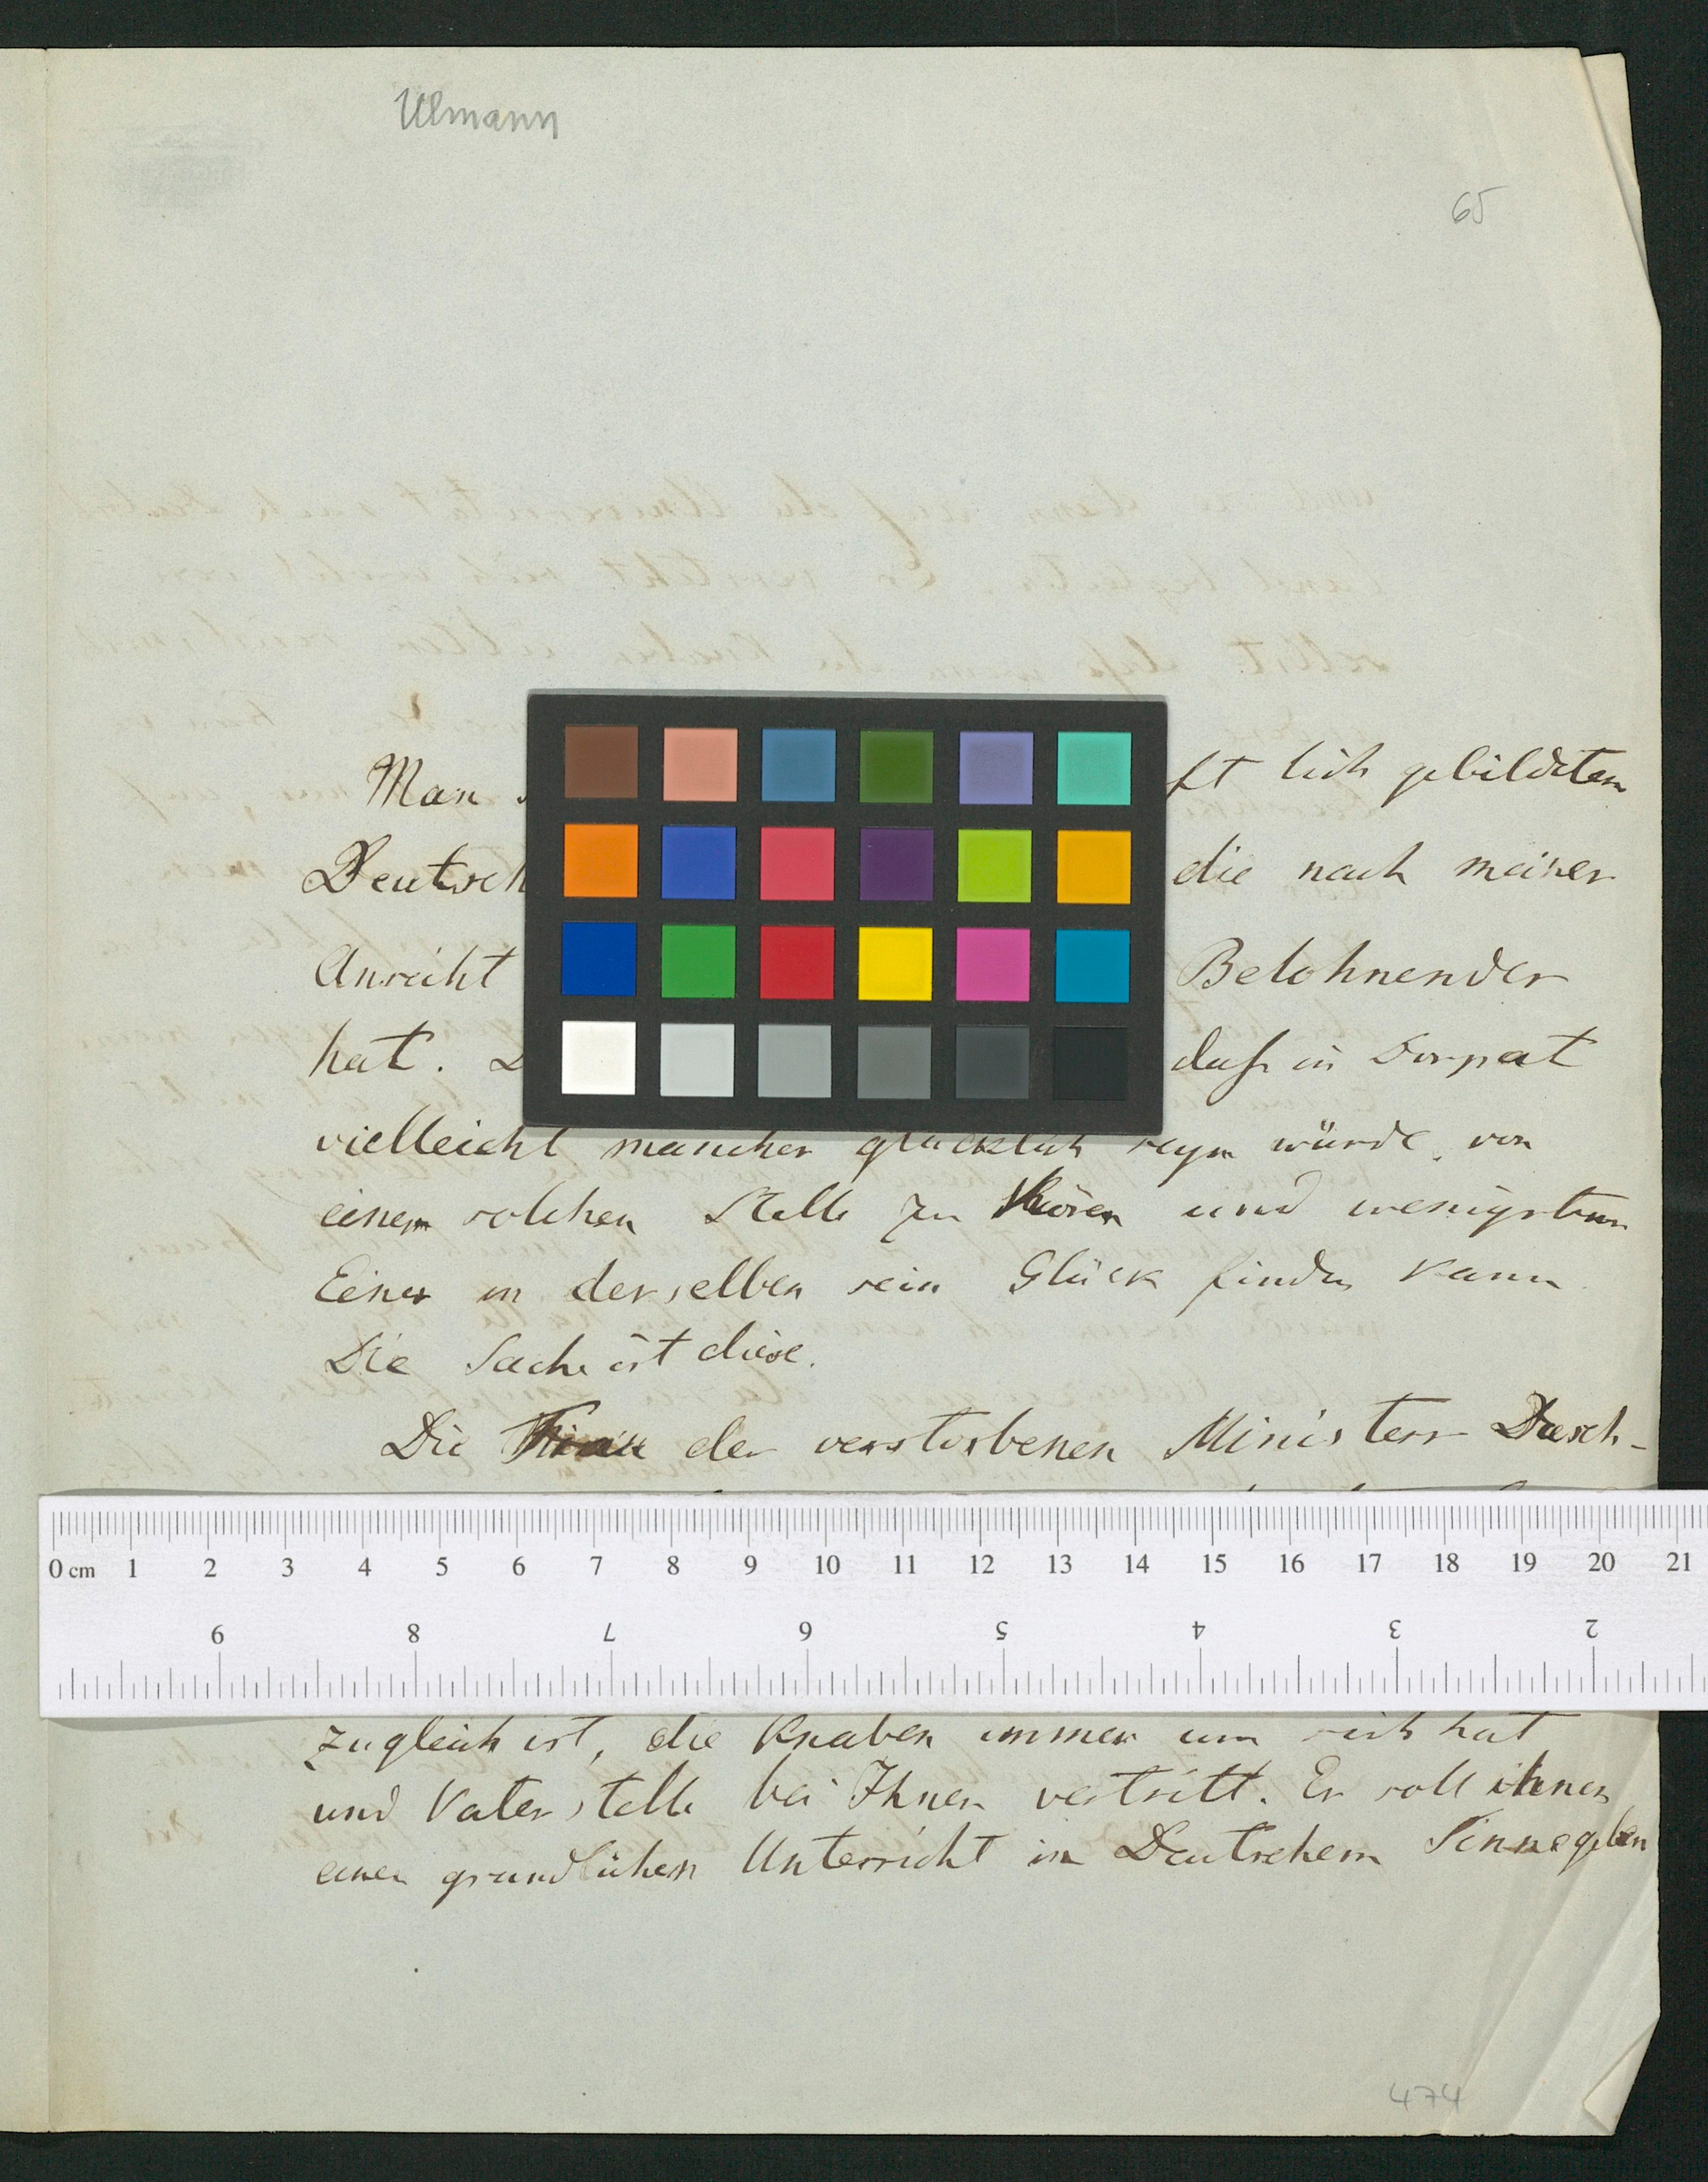 Ulmann
65
Man ft lich gebildeten
Deutsch die nach meiner
Ansicht Belohnender
hat. D daß in Dorpat
vielleicht mancher glücklich seyn würde, von
einem solchen Stelle zu hören und wenigstens
Einer in derselben sein Glück finden kann
Die Sache ist diese.
Die Frau des verstorbenen Ministers Dasch-
0 cm 1 2 3 4 5 6 7 8 9 10 11 12 13 14 15 16 17 18 19 20 21
9 8 7 6 5 4 3 2
zugleich ist, die Knaben immer um sich hat
und Vaterstelle bei Ihnen vertritt. Er soll ihnen
einen gründlichen Unterricht in Deutschem Sinne geben
474